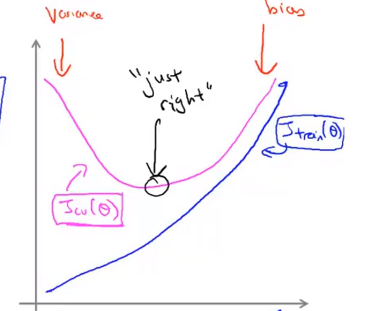 Variance
bias
"just
right"
J_train(θ)
J_cv(θ)